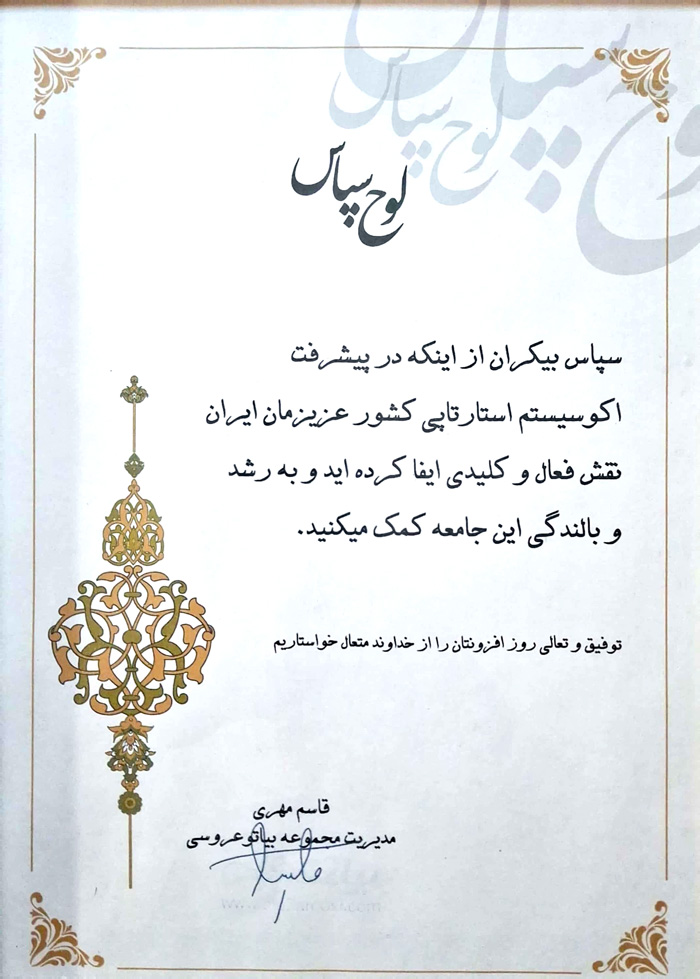 لوح سپاس
لوح سپاس
لوح سپاس
سپاس بیکران از اینکه در پیشرفت
اکوسیستم استارتاپی کشور عزیزمان ایران
نقش فعال و کلیدی ایفا کرده اید و به رشد
و بالندگی این جامعه کمک میکنید.
توفیق و تعالی روز افزونتان را از خداوند متعال خواستاریم
قاسم مهری
مدیریت مجموعه بیاتو عروسی